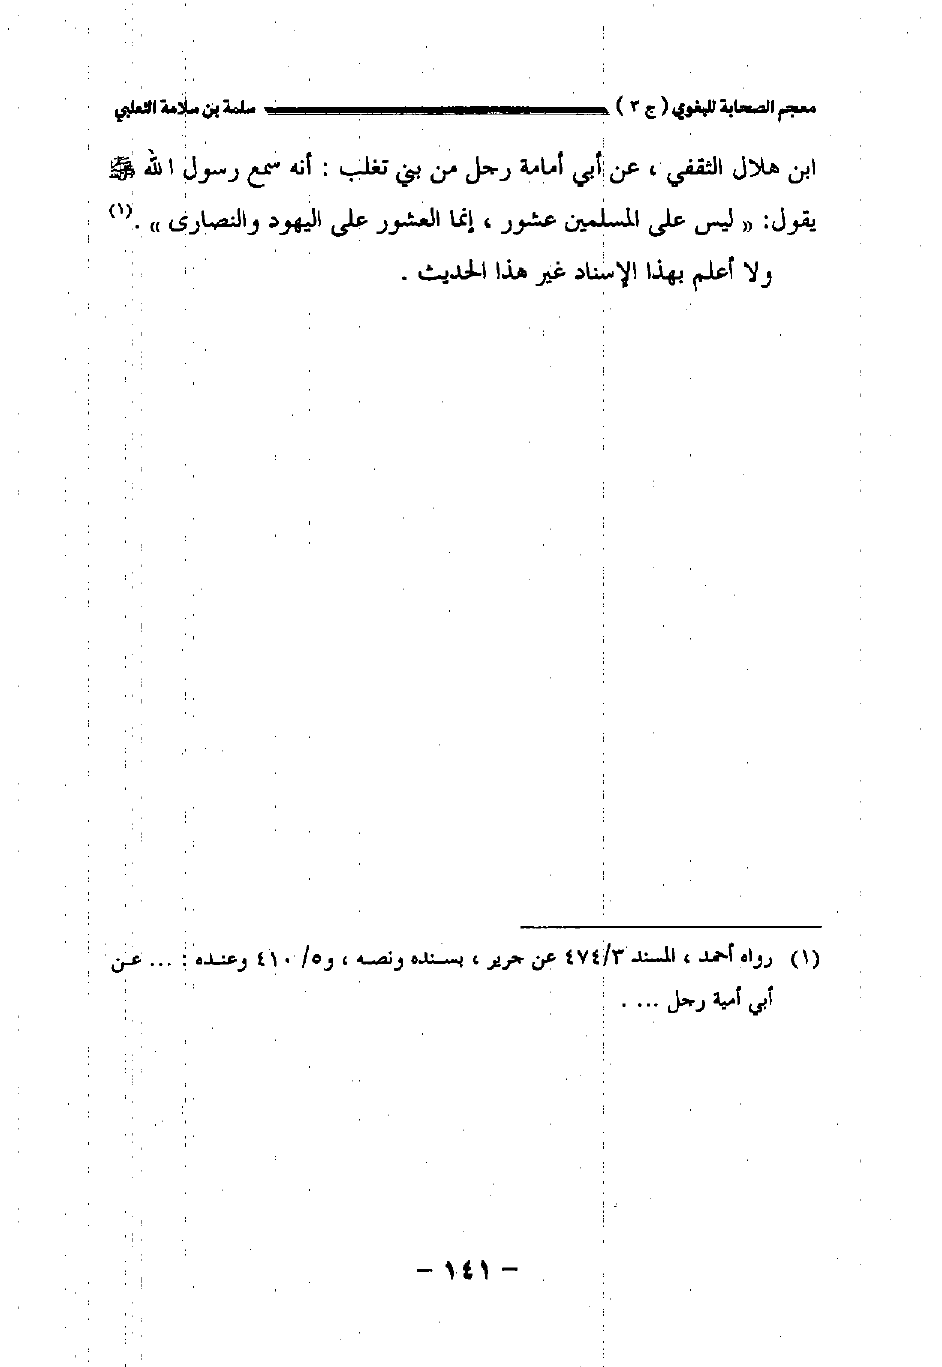 معجم الصحابة للبغوي ( ج ٣ ) سلمة بن سلامة الثعلبي
ابن هلال الثقفي ، عن أبي أمامة رجل من بني تغلب : أنه سمع رسول الله ﷺ
يقول: « ليس على المسلمين عشور ، إنما العشور على اليهود والنصارى » .(١)
ولا أعلم بهذا الإسناد غير هذا الحديث .
(١) رواه أحمد ، المسند ٤٧٤/٣ عن جرير ، بسنده ونصه ، و٥/ ٤١٠ وعنده : ... عن
أبي أمية رجل ... .
– ١٤١ –